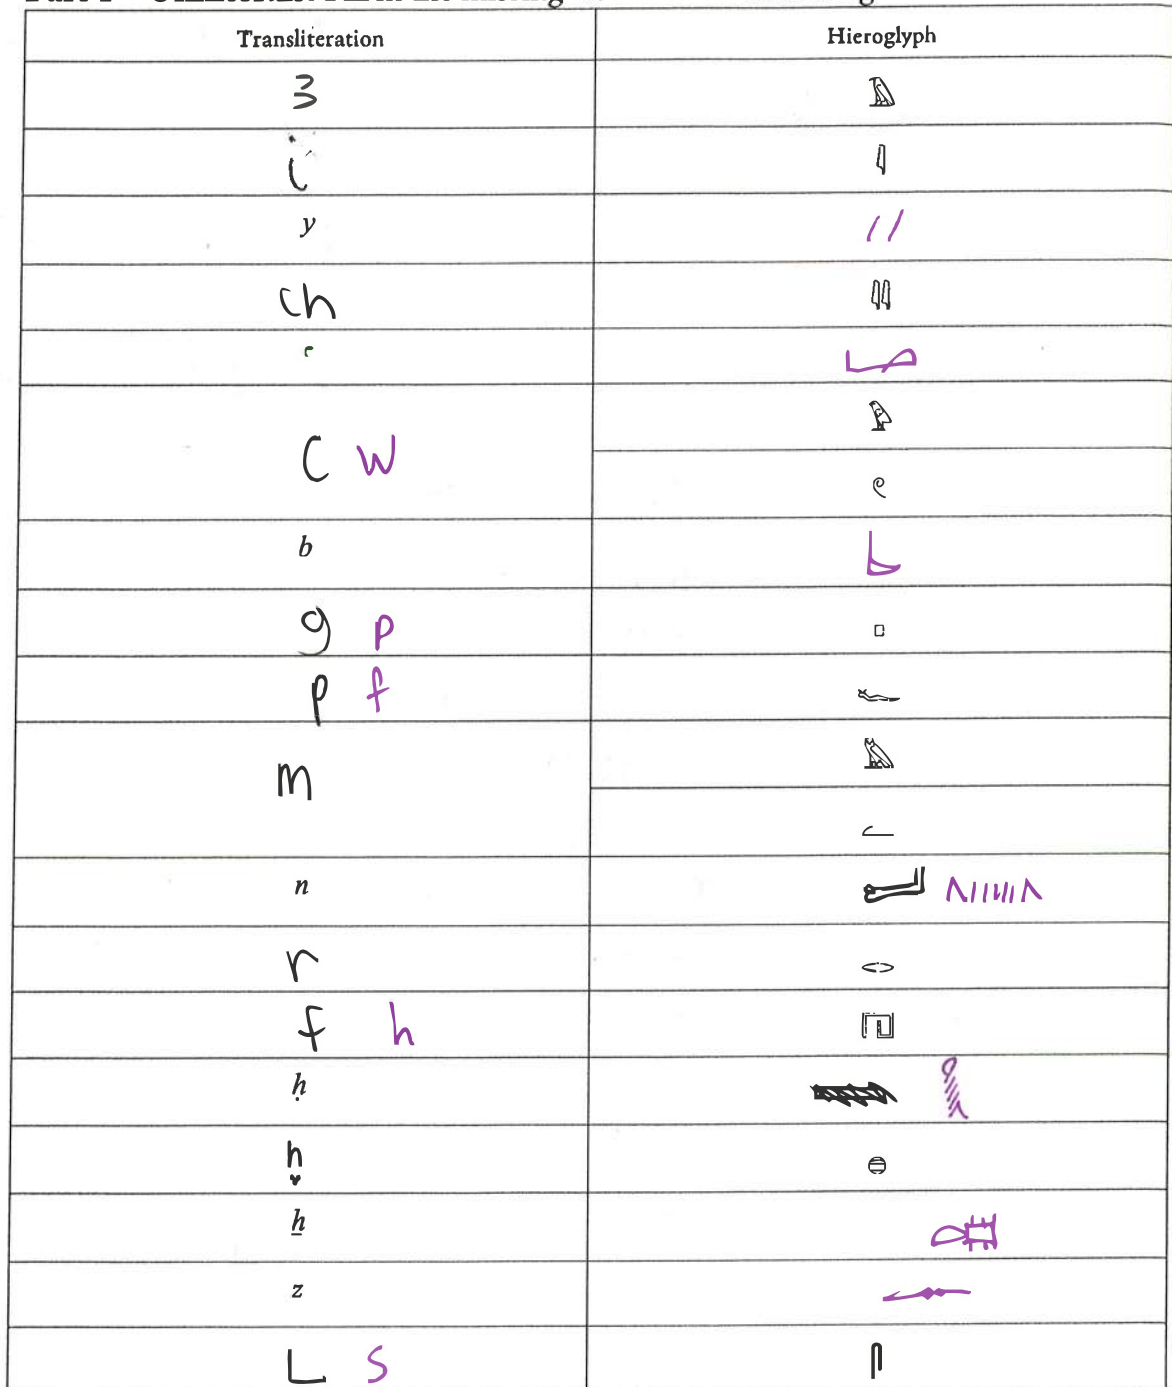 Transliteration Hieroglyph
3 𓄿
i 𓇋
y 𓏭
ch 𓇌
ꜥ 𓂝
C w 𓅱
𓏲
b 𓃀
g p 𓊪
p f 𓆑
m 𓅓
𓐝
n 𓈖
r 𓂋
f h 𓉔
ḥ 𓎛
h 𓐍
ẖ 𓄡
z 𓊃
L s 𓋴